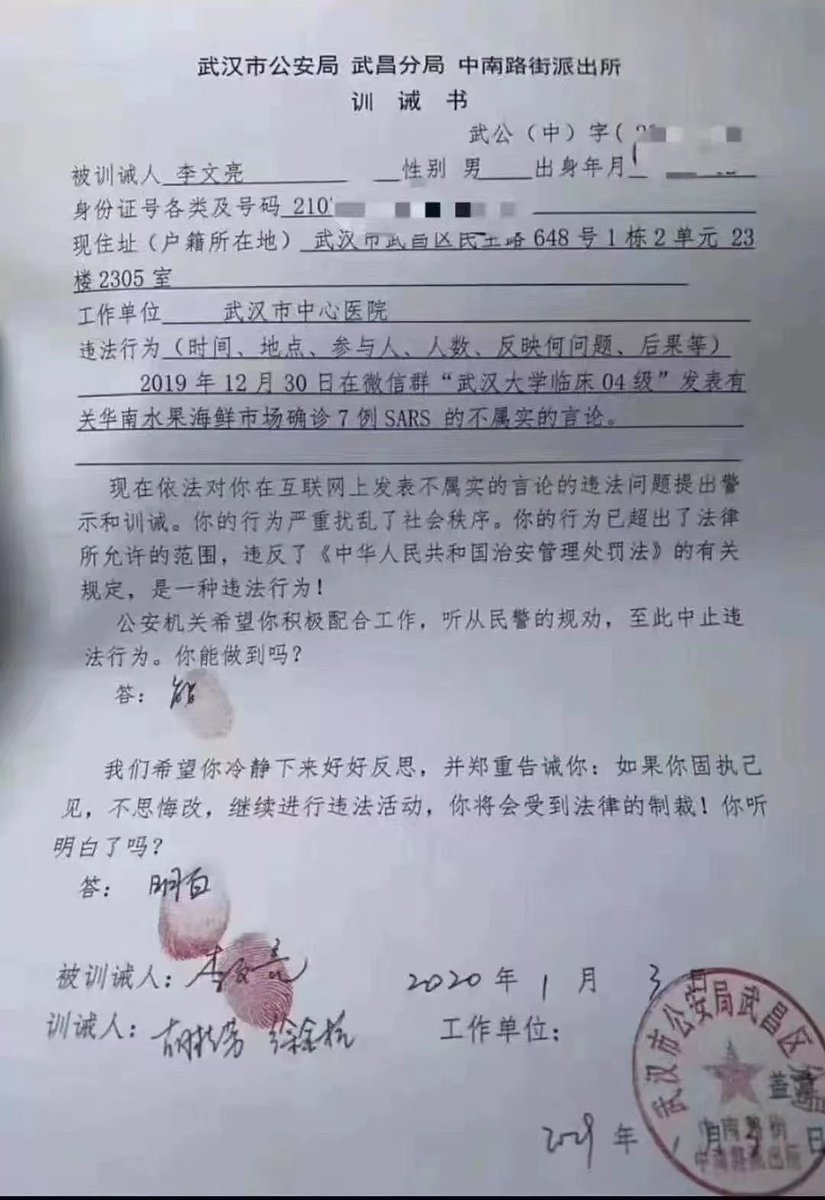 武汉市公安局 武昌分局 中南路街派出所
训 诫 书
武公（中）字（
被训诫人 李文亮 性别 男 出身年月
身份证号各类及号码 210
现住址（户籍所在地） 武汉市武昌区民主路 648 号 1 栋 2 单元 23
楼 2305 室
工作单位 武汉市中心医院
违法行为（时间、地点、参与人、人数、反映何问题、后果等）
2019 年 12 月 30 日在微信群“武汉大学临床 04 级”发表有
关华南水果海鲜市场确诊 7 例 SARS 的不属实的言论。
现在依法对你在互联网上发表不属实的言论的违法问题提出警
示和训诫。你的行为严重扰乱了社会秩序。你的行为已超出了法律
所允许的范围，违反了《中华人民共和国治安管理处罚法》的有关
规定，是一种违法行为！
公安机关希望你积极配合工作，听从民警的规劝，至此中止违
法行为。你能做到吗？
答： 能
我们希望你冷静下来好好反思，并郑重告诫你：如果你固执己
见，不思悔改，继续进行违法活动，你将会受到法律的制裁！你听
明白了吗？
答： 明白
被训诫人： 李文亮 2020 年 1 月 3 日
训诫人： 工作单位：
武汉市公安局武昌区
盖章
中南路街派出所
年 1 月 3 日